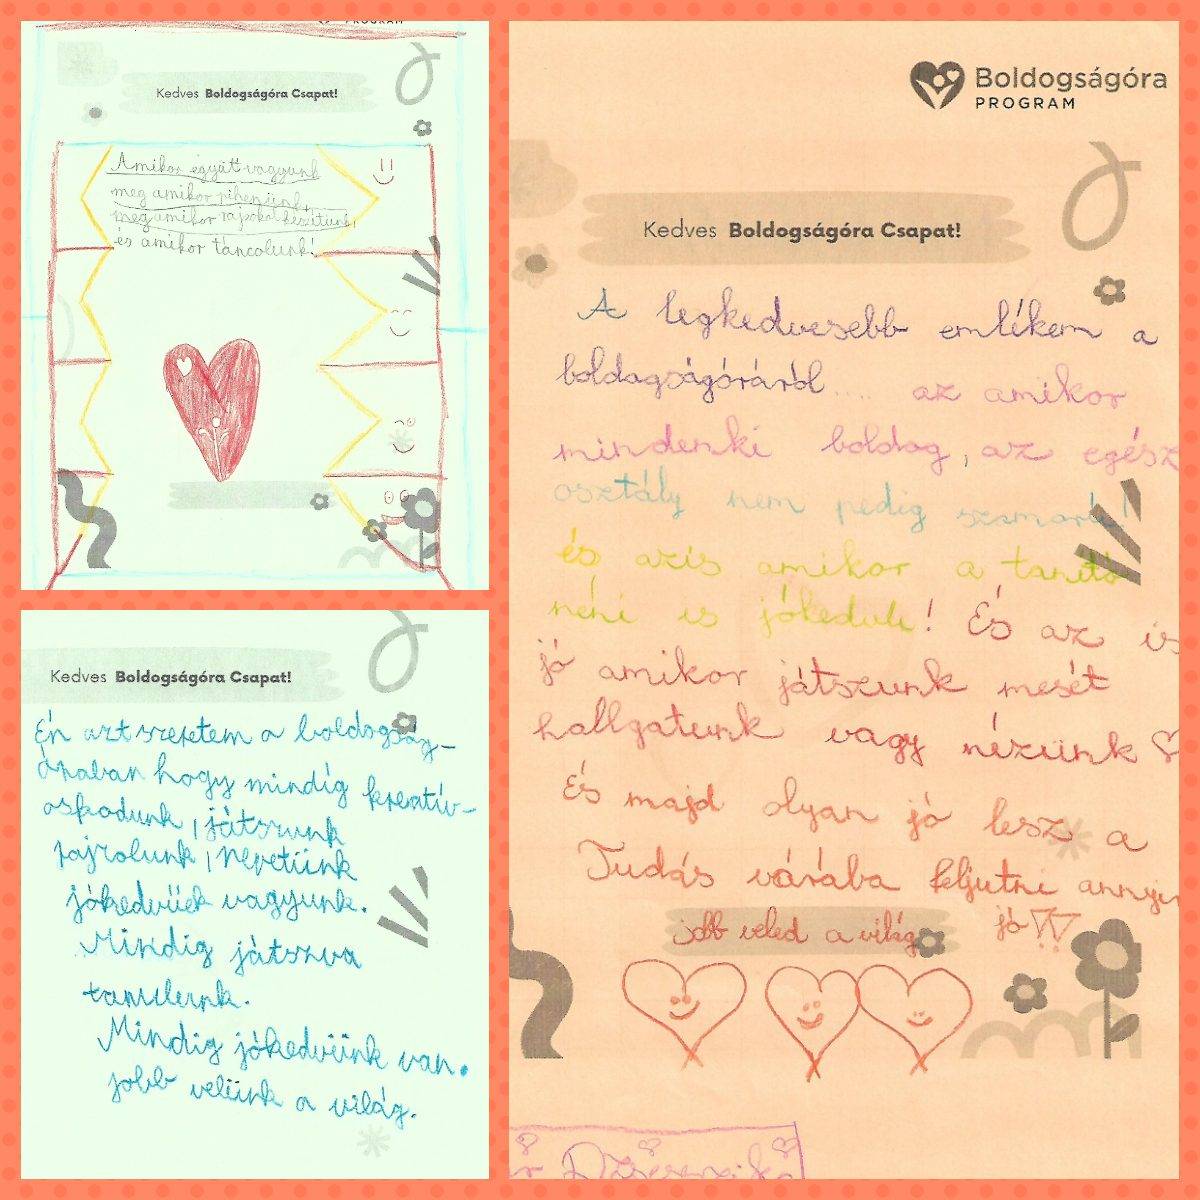 PROGRAM
Kedves Boldogságóra Csapat!
Amikor együtt vagyunk
meg amikor pihenünk,
meg amikor rajzokat készítünk,
és amikor táncolunk!
Kedves Boldogságóra Csapat!
Én azt szeretem a boldogság-
órában hogy mindíg kreatív-
oskodunk, játszunk
rajzolunk, nevetünk
jókedvűek vagyunk.
Mindig játszva
tanulunk.
Mindig jókedvünk van.
jobb velünk a világ.
Boldogságóra
PROGRAM
Kedves Boldogságóra Csapat!
A legkedvesebb emlékem a
boldogságóráról.... az amikor
mindenki boldog, az egész
osztály nem pedig szomorú!
és azis amikor a tanító
néni is jókedvű! És az is
jó amikor játszunk mesét
hallgatunk vagy nézünk
És majd olyan jó lesz a
Tudás várába feljutni annyira
jó!!
jobb veled a világ